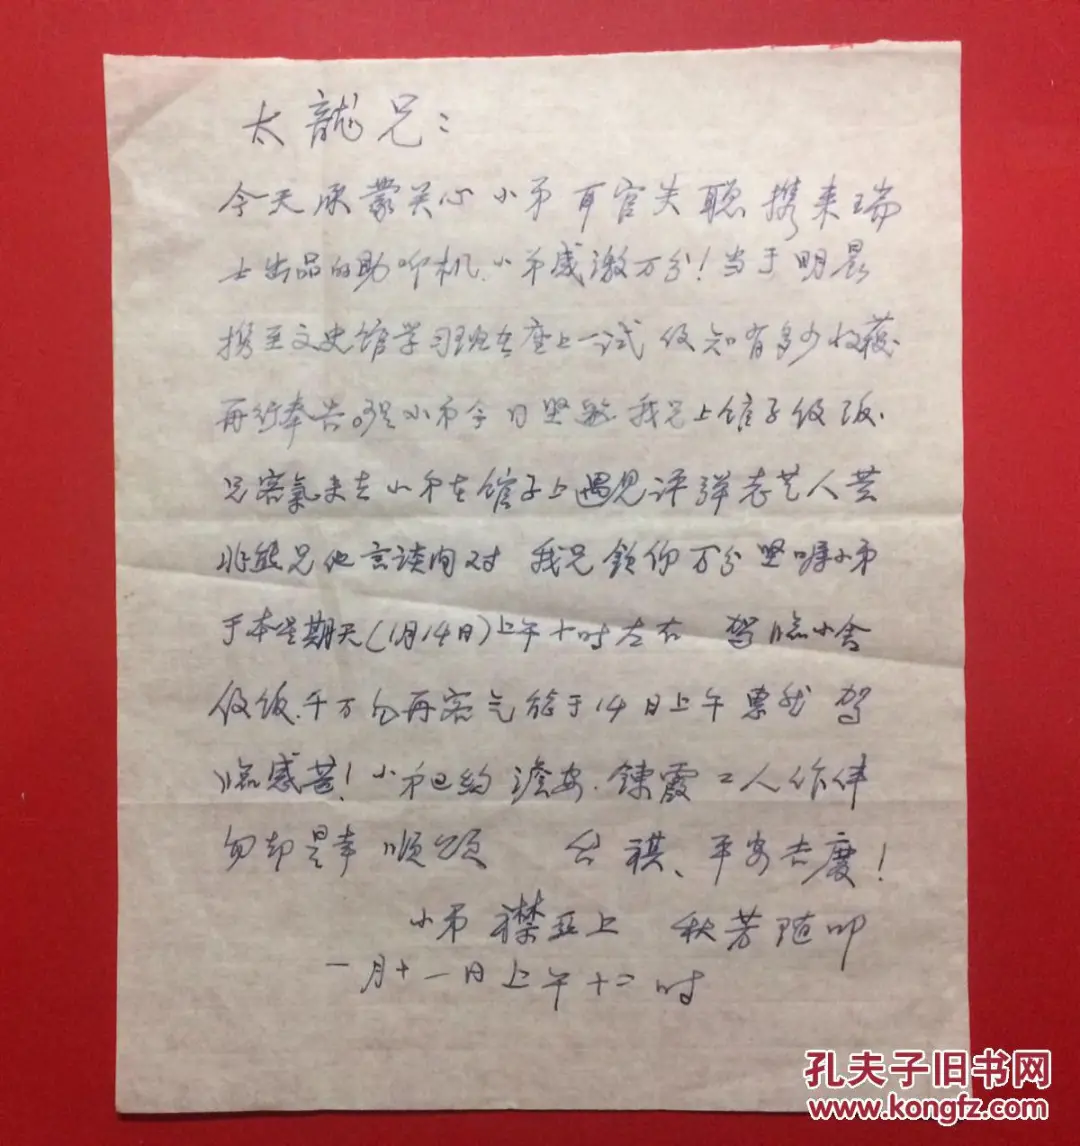 太龍兄:
今天承蒙关心小弟耳官失聪携来瑞
士出品的助听机、小弟感激万分!当于明晨
携至文史馆学习班在座上一试 使知有多少收获
再行奉告。小弟今日坚邀我兄上馆子便饭
兄客氣未去小弟在馆子上遇见评弹老艺人黄
兆熊兄他言谈间对 我兄钦仰万分坚嘱小弟
于本星期天(1月14日)上午十时左右 驾临小舍
便饭、千万勿再客气能于14日上午惠然 驾
临感甚!小弟已约澹安、鍊霞二人作伴
勿却是幸 順颂 台祺、平安吉慶!
小弟襟亚上 秋芳随叩
一月十一日上午十二时
孔夫子旧书网
www.kongfz.com